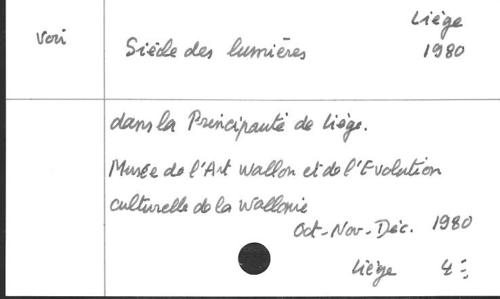 Liège
Voir Siècle des lumières 1980
dans la Principauté de Liège.
Musée de l'Art Wallon et de l'Evolution
culturelle de la Wallonie
Oct-Nov-Déc. 1980
Liège